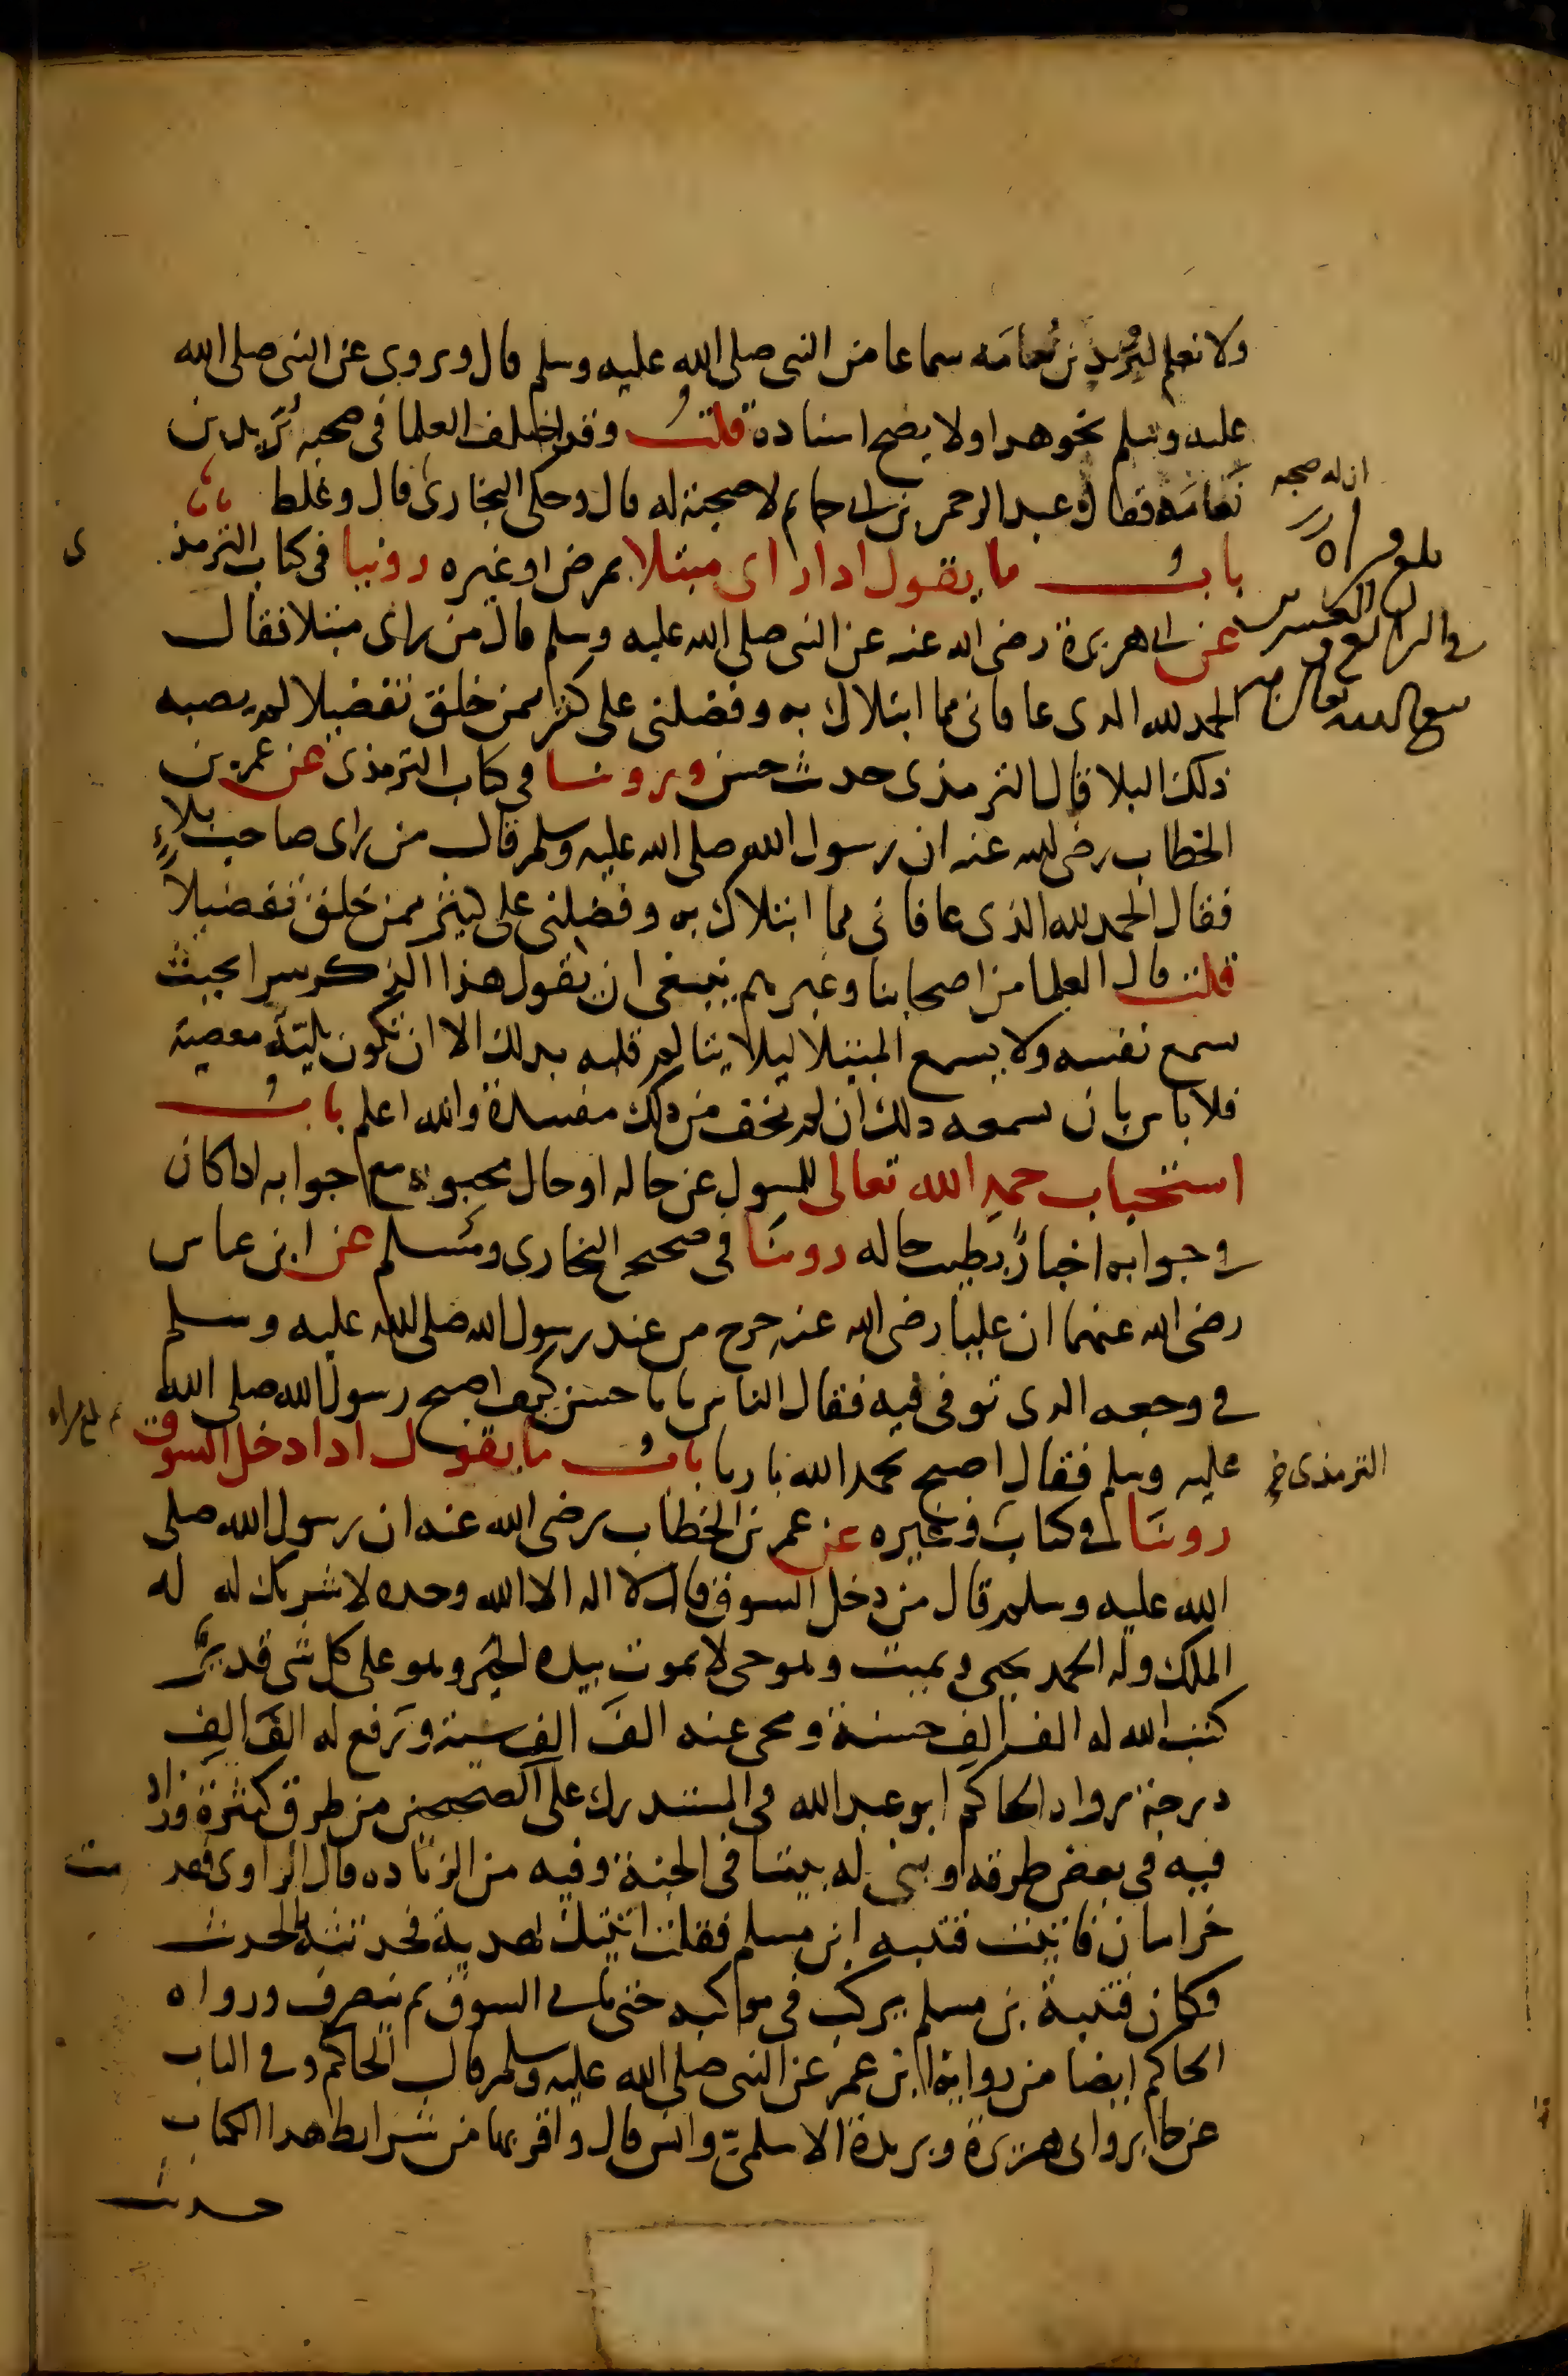 ولا نعلم ليزيد بن نعامه سماعا من النبى صلى الله عليه وسلم قال ويروى عن النبى صلى الله
عليه وسلم نحو هدا ولا يصح اسناده قلت وقد اختلف العلما فى صحبه يزيد بن
نعامه فقال عبد الرحمن بن ابى حاتم لا صحبة له قال وحكى البخارى قال وغلط
ان له صحبه
باب ما يقول ادا راى مبتلا بمرض او غيره روينا فى كتاب الترمذ
ى
عن ابى هريرة رضى الله عنه عن النبى صلى الله عليه وسلم قال من راى مبتلا فقال
الحمد لله الدى عافانى مما ابتلاك به وفضلنى على كثير ممن خلق تفضيلا لم يصبه
ذلك البلا قال الترمذى حديث حسن وروينا فى كتاب الترمذى عن عمر بن
الخطاب رضى الله عنه ان رسول الله صلى الله عليه وسلم قال من راى صاحب بلاء
فقال الحمد لله الذى عافانى مما ابتلاك به وفضلنى على كثير ممن خلق تفضيلا
قلت قال العلما من اصحابنا وغيرهم ينبغى ان يقول هذا الذكر سرا بحيث
يسمع نفسه ولا يسمع المبتلا ليلا يتالم قلبه بدلك الا ان تكون بليته معصية
فلا باس بان يسمعه دلك ان لم يخف من ذلك مفسدة والله اعلم باب
استحباب حمد الله تعالى للمسول عن حاله او حال محبوبه مع جوابه اذا كان
فى جوابه اخبار بطيب حاله روينا فى صحيح البخارى ومسلم عن ابن عباس
رضى الله عنهما ان عليا رضى الله عنه خرج من عند رسول الله صلى الله عليه وسلم
فى وجعه الدى توفى فيه فقال الناس يابا حسن كيف اصبح رسول الله صلى الله
عليه وسلم فقال اصبح بحمد الله باريا باب ما يقول ادا دخل السوق
الترمذى
روينا فى كتاب وغيره عن عمر بن الخطاب رضى الله عنه ان رسول الله صلى
الله عليه وسلم قال من دخل السوق فقال لا اله الا الله وحده لا شريك له له
الملك وله الحمد يحيى ويميت وهو حى لا يموت بيده الخير وهو على كل شى قدير
كتب الله له الف الف حسنة ومحى عنه الف الف سيئة ورفع له الف الف
درجة رواه الحاكم ابو عبد الله فى المستدرك على الصحيحين من طرق كثيرة وزاد
فيه فى بعض طرقه وبنى له بيتا فى الجنة وفيه من الزياده قال الراوى فقد
مت
خراسان فاتيت قتيبه ابن مسلم فقلت اتيتك بهدية فحدثته بالحديث
فكان قتيبة بن مسلم يركب فى موكبه حتى ياتى السوق ثم ينصرف ورواه
الحاكم ايضا من رواية ابن عمر عن النبى صلى الله عليه وسلم قال الحاكم وفى الباب
عن جابر وابى هريرة وبريدة الاسلمى وانس قال واقربها من شرايط هدا الكتاب
حديث